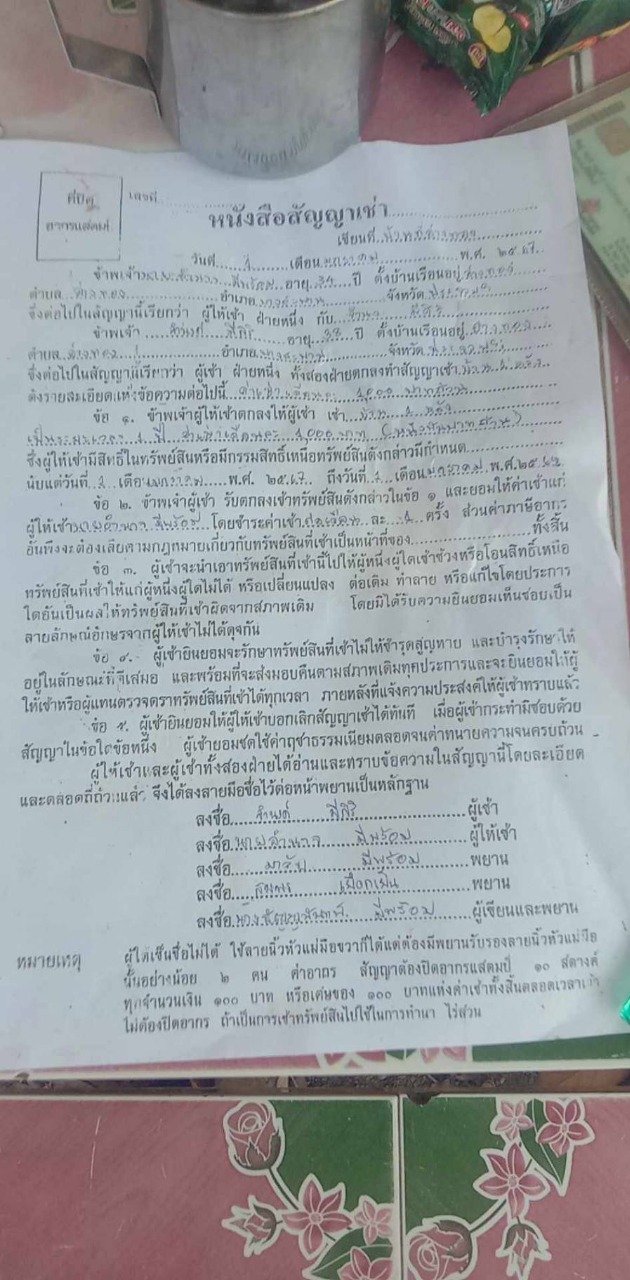 ที่ปิด
อากรแสตมป์
เลขที่
หนังสือสัญญาเช่า
เขียนที่
วันที่ 1 เดือน มกราคม พ.ศ. ๒๕๖๗
ข้าพเจ้า อายุ ปี ตั้งบ้านเรือนอยู่
ตำบล อำเภอ จังหวัด
ซึ่งต่อไปในสัญญานี้เรียกว่า ผู้ให้เช่า ฝ่ายหนึ่ง กับ
ข้าพเจ้า อายุ 38 ปี ตั้งบ้านเรือนอยู่
ตำบล อำเภอ จังหวัด
ซึ่งต่อไปในสัญญานี้เรียกว่า ผู้เช่า ฝ่ายหนึ่ง ทั้งสองฝ่ายตกลงทำสัญญาเช่า บ้าน 1 หลัง
ดังรายละเอียดแห่งข้อความต่อไปนี้ 1,000 บาทถ้วน
ข้อ ๑. ข้าพเจ้าผู้ให้เช่าตกลงให้ผู้เช่า เช่า บ้าน 1 หลัง
เป็นระยะเวลา 1 ปี 1,000 บาท (หนึ่งพันบาทถ้วน)
ซึ่งผู้ให้เช่ามีสิทธิ์ในทรัพย์สินหรือมีกรรมสิทธิ์เหนือทรัพย์สินดังกล่าวมีกำหนด
นับแต่วันที่ 1 เดือน มกราคม พ.ศ. ๒๕๖๗ ถึงวันที่ 1 เดือน มกราคม พ.ศ. ๒๕
ข้อ ๒. ข้าพเจ้าผู้เช่า รับตกลงเช่าทรัพย์สินดังกล่าวในข้อ ๑ และยอมให้ค่าเช่าแก่
ผู้ให้เช่า โดยชำระค่าเช่า ละ 1 ครั้ง ส่วนค่าภาษีอากร
อันพึงจะต้องเสียตามกฎหมายเกี่ยวกับทรัพย์สินที่เช่าเป็นหน้าที่ของ ทั้งสิ้น
ข้อ ๓. ผู้เช่าจะนำเอาทรัพย์สินที่เช่านี้ไปให้ผู้หนึ่งผู้ใดเช่าช่วงหรือโอนสิทธิ์เหนือ
ทรัพย์สินที่เช่าให้แก่ผู้หนึ่งผู้ใดไม่ได้ หรือเปลี่ยนแปลง ต่อเติม ทำลาย หรือแก้ไขโดยประการ
ใดอันเป็นผลให้ทรัพย์สินที่เช่าผิดจากสภาพเดิม โดยมิได้รับความยินยอมเห็นชอบเป็น
ลายลักษณ์อักษรจากผู้ให้เช่าไม่ได้ดุจกัน
ข้อ ๔. ผู้เช่ายินยอมจะรักษาทรัพย์สินที่เช่าไม่ให้ชำรุดสูญหาย และบำรุงรักษาให้
อยู่ในลักษณะที่ดีเสมอ และพร้อมที่จะส่งมอบคืนตามสภาพเดิมทุกประการและจะยินยอมให้ผู้
ให้เช่าหรือผู้แทนตรวจตราทรัพย์สินที่เช่าได้ทุกเวลา ภายหลังที่แจ้งความประสงค์ให้ผู้เช่าทราบแล้ว
ข้อ ๕. ผู้เช่ายินยอมให้ผู้ให้เช่าบอกเลิกสัญญาเช่าได้ทันที เมื่อผู้เช่ากระทำมิชอบด้วย
สัญญาในข้อใดข้อหนึ่ง ผู้เช่ายอมชดใช้ค่าฤชาธรรมเนียมตลอดจนค่าทนายความจนครบถ้วน
ผู้ให้เช่าและผู้เช่าทั้งสองฝ่ายได้อ่านและทราบข้อความในสัญญานี้โดยละเอียด
และตลอดถี่ถ้วนแล้ว จึงได้ลงลายมือชื่อไว้ต่อหน้าพยานเป็นหลักฐาน
ลงชื่อ ผู้เช่า
ลงชื่อ มีพร้อม ผู้ให้เช่า
ลงชื่อ มีพร้อม พยาน
ลงชื่อ พยาน
ลงชื่อ มีพร้อม ผู้เขียนและพยาน
หมายเหตุ ผู้ใดเซ็นชื่อไม่ได้ ใช้ลายนิ้วหัวแม่มือขวาก็ได้แต่ต้องมีพยานรับรองลายนิ้วหัวแม่มือ
นั้นอย่างน้อย ๒ คน ค่าอากร สัญญาต้องปิดอากรแสตมป์ ๑๐ สตางค์
ทุกจำนวนเงิน ๑๐๐ บาท หรือเศษของ ๑๐๐ บาทแห่งค่าเช่าทั้งสิ้นตลอดเวลาเช่า
ไม่ต้องปิดอากร ถ้าเป็นการเช่าทรัพย์สินไปใช้ในการทำนา ไร่สวน